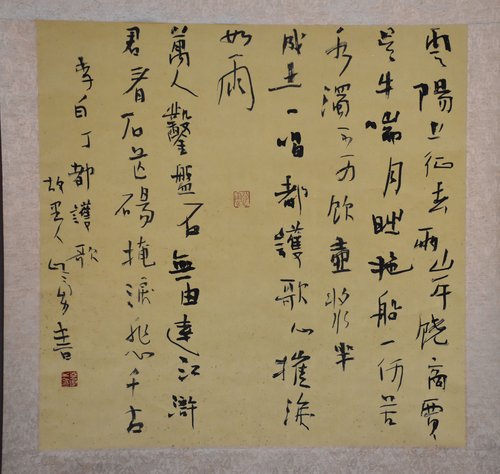 雲陽上征去兩岸饒商賈
吳牛喘月時拖船一何苦
水濁不可飲壺漿半
成土一唱都護歌心摧淚
如雨
萬人鑿盤石無由達江滸
君看石芒碭掩淚悲千古
李白丁都護歌
書